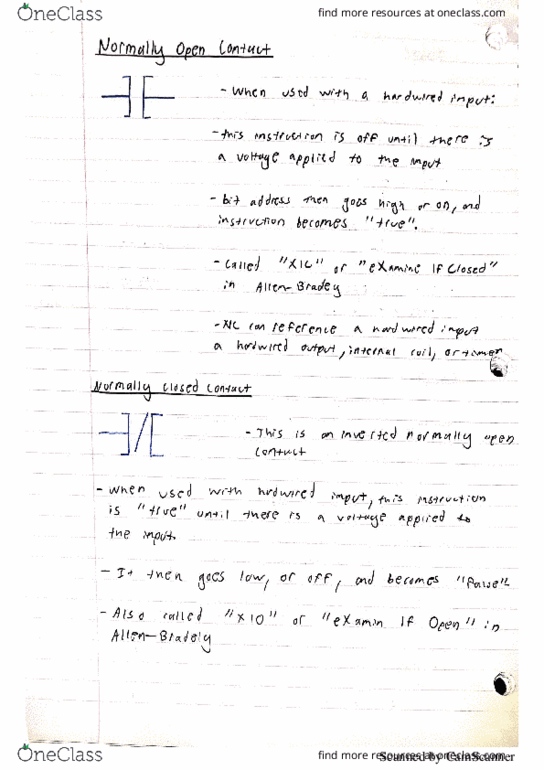 OneClass
find more resources at oneclass.com
Normally Open Contact
- When used with a hardwired input:
- this instruction is off until there is
a voltage applied to the input
- bit address then goes high or on, and
instruction becomes "true".
- Called "XIC" or "eXamine If Closed"
in Allen-Bradey
- XIC can reference a hardwired input
a hardwired output, internal coil, or timer
Normally Closed Contact
- This is an inverted normally open
contact
- when used with hardwired input, this instruction
is "true" until there is a voltage applied to
the input.
- It then goes low, or off, and becomes "false"
- Also called "XIO" or "eXamin If Open" in
Allen-Bradely
OneClass
find more resources at oneclass.com
Scanned by CamScanner